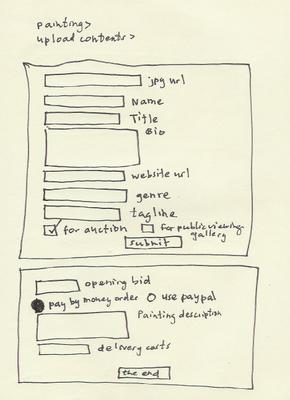 paintings>
upload contents>
jpg url
Name
Title
Bio
website url
genre
tagline
for auction for public viewing gallery
submit
opening bid
pay by money order use paypal
Painting description
delivery costs
the end